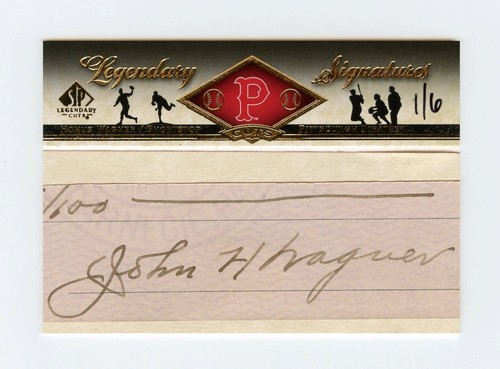 Legendary Signatures
SP
LEGENDARY
CUTS
P
1/6
Honus Wagner
CUTS
Pittsburgh
/100
John H Wagner